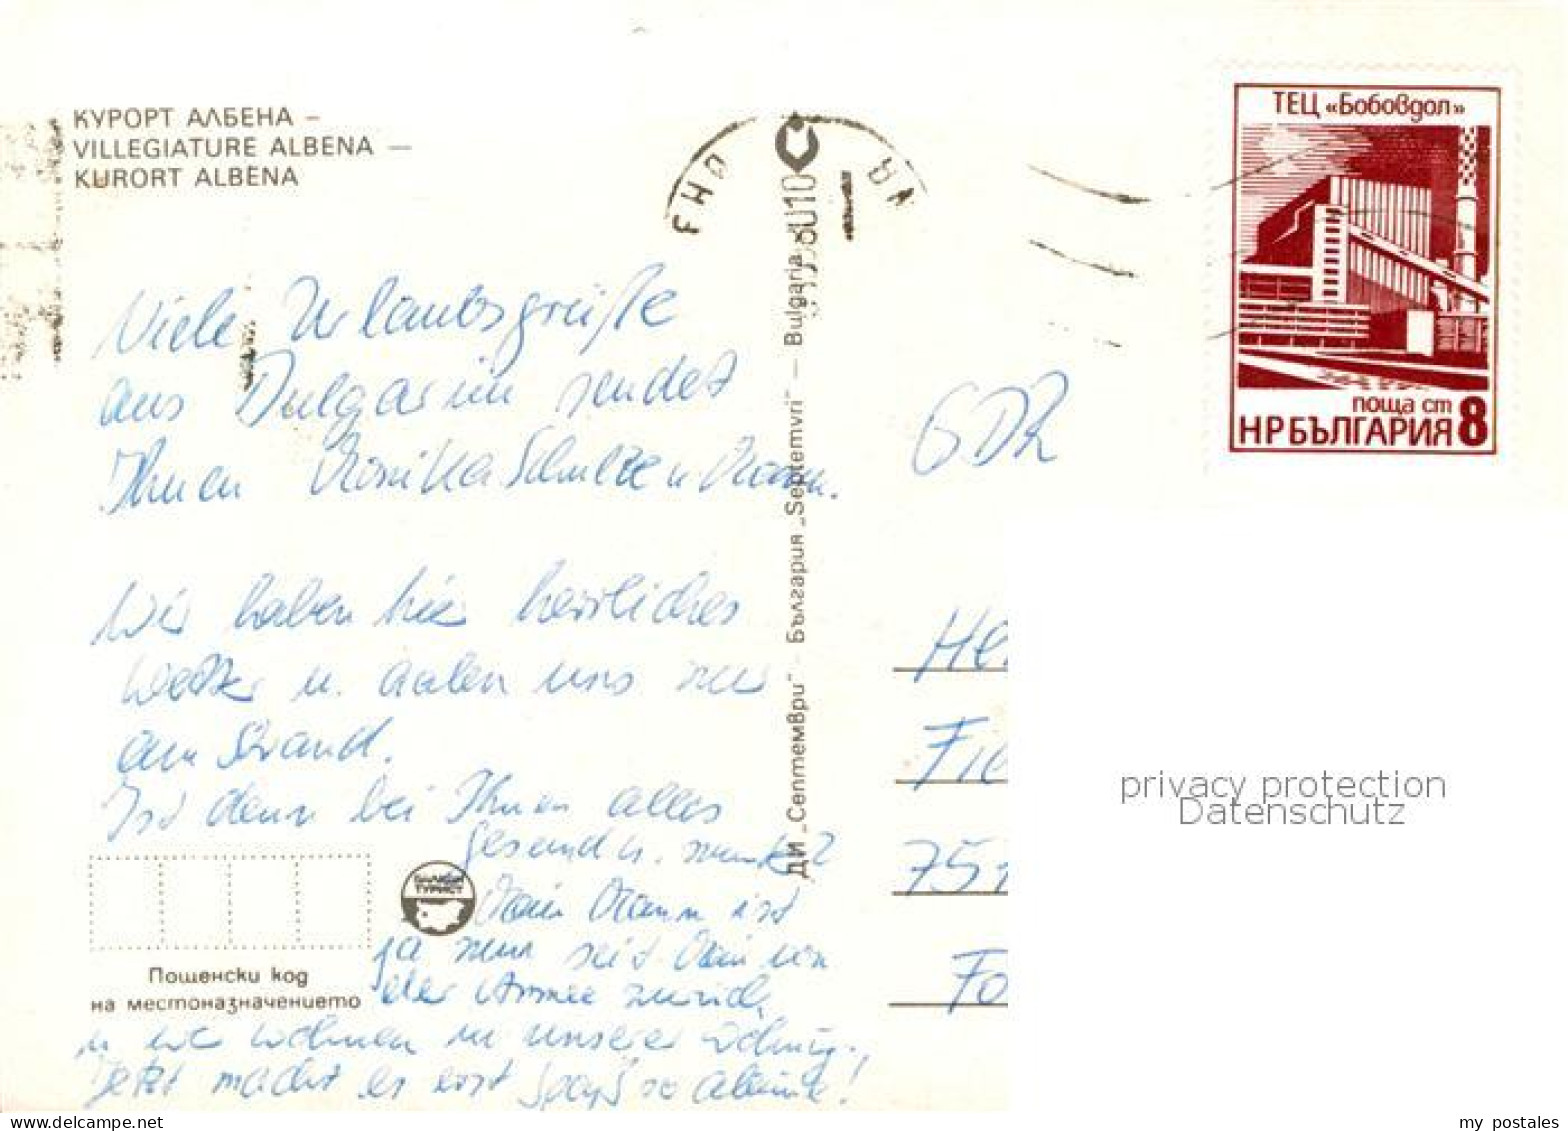 КУРОРТ АЛБЕНА –
VILLEGIATURE ALBENA —
KURORT ALBENA
ТЕЦ «Бобовдол»
поща ст 8
НРБЪЛГАРИЯ
Viele Urlaubsgrüße
aus Bulgarien sendet
Ihnen Monika Schulze u. Mann.
GDR
Wir haben hier herrliches
Wetter u. aalen uns nur
am Strand.
Ist denn bei Ihnen alles
gesund u. munter?
Mein Mann ist
ja nun seit Juni von
der Armee zurück,
u. wir wohnen in unserer Wohnung.
Jetzt macht es erst Spaß so alleine!
ДИ „Септември" – България „Septemvri" — Bulgaria
He
Fie
751
Fo
БАЛКАН
ТУРИСТ
Пощенски код
на местоназначението
privacy protection
Datenschutz
my_postales